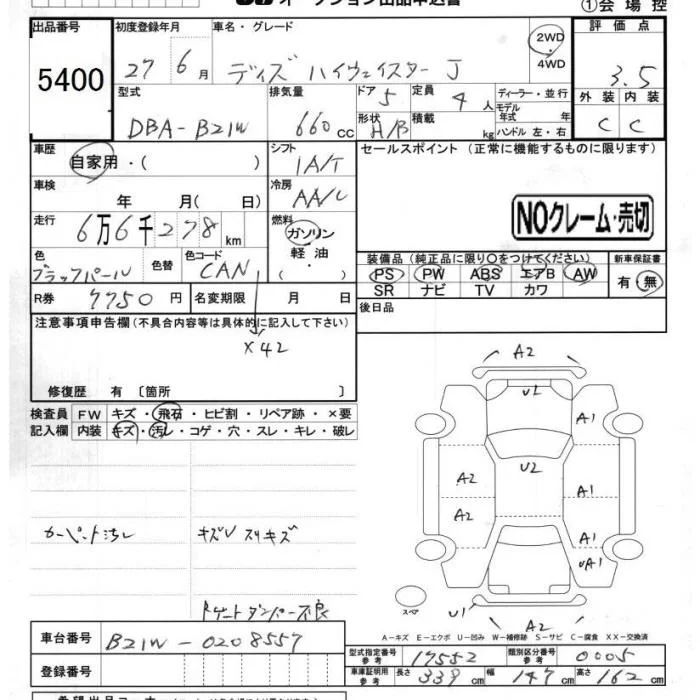 オークション出品申込書
①会場控
出品番号 5400
初度登録年月 27 6月
車名・グレード デイズ ハイウェイスター J
2WD・4WD
評価点 3.5
型式 DBA-B21W
排気量 660cc
ドア 5 定員 4人
形状 H/B 積載 kg
ディーラー・並行
モデル年式 年式
ハンドル 左・右
外装 内装
C C
車歴 自家用・( )
シフト IA/T
セールスポイント(正常に機能するものに限ります)
車検 年 月( 日)
冷房 AA/C
走行 6万6千278km
燃料 ガソリン 軽油 ( ・ )
NOクレーム・売切
色 ブラックパール 色替 色コード CAN
X42
装備品(純正品に限り○をつけてください) 新車保証書
PS PW ABS エアB AW
SR ナビ TV カワ
有・無
R券 7750円 名変期限 月 日
後日品
注意事項申告欄(不具合内容等は具体的に記入して下さい)
修復歴 有 〔箇所 〕
検査員 FW キズ・飛石・ヒビ割・リペア跡・×要
記入欄 内装 キズ・汚レ・コゲ・穴・スレ・キレ・破レ
カーペット汚レ
キズU スリキズ
Rゲートダンパー不良
A2
U1
A1
U2
A2
A1
A2
A1
UA1
スペア
U1
A2
A-キズ E-エクボ U-凹み W-補修跡 S-サビ C-腐食 XX-交換済
車台番号 B21W-0208557
型式指定番号 参考 17552 類別区分番号 参考 0005
登録番号
車庫証明用 参考 長さ 339cm 幅 147cm 高さ 162cm